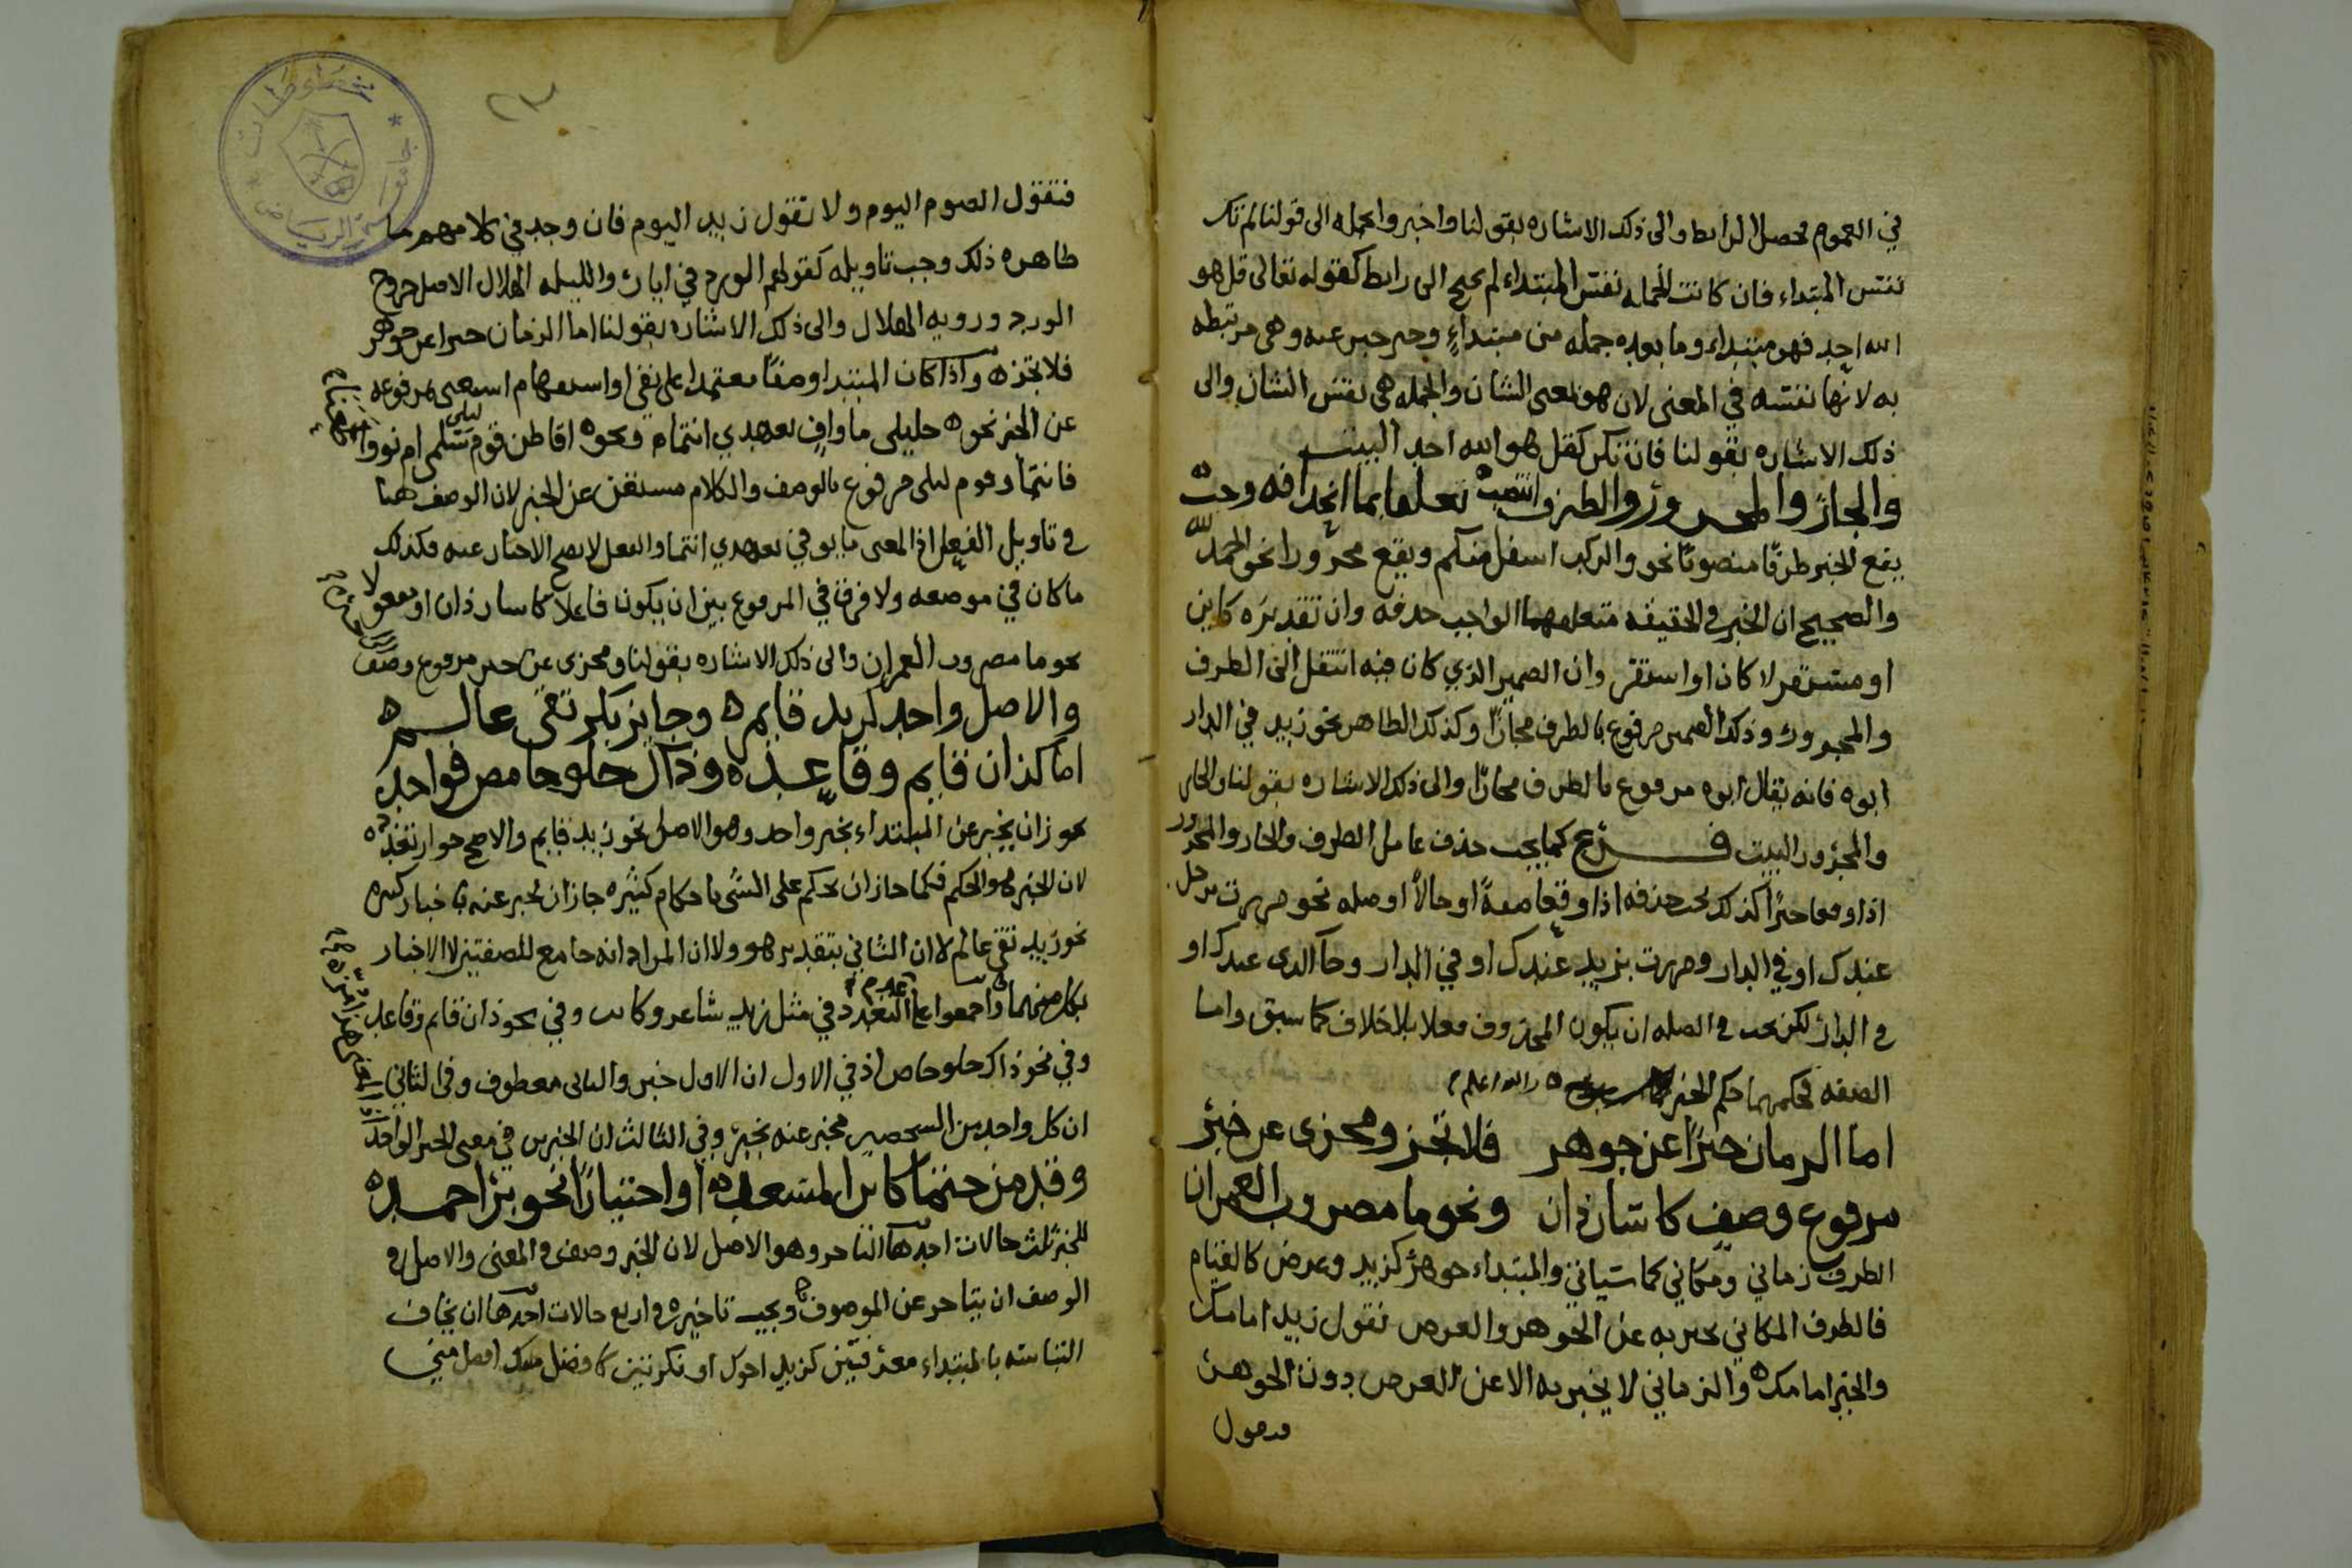 في العموم محصل الرابط والى ذلك الاشاره بقولنا واخبر والجمله الى قولنا لم تك
نفس المبتداء فان كانت الجمله نفس المبتداء لم يحتج الى رابط كقوله تعالى قل هو
الله احد فهو مبتداء وما بعده جمله من مبتداءٍ وخبر خبر عنه وهى مرتبطه
به لانها نفسه في المعنى لان هو بمعنى الشان والجمله هى نفس الشان والى
ذلك الاشاره بقولنا فان تكن كقل هو الله احد البيت
والجار والمجرور والظرف انتصب تعلقا بما انحذافه وجب
يقع الخبر ظرفًا منصوبًا نحو والركب اسفل منكم ويقع مجرورا نحو الحمد لله
والصحيح ان الخبر في الحقيقه متعلقهما الواجب حذفه وان تقديره كاين
او مستقر لا كان او استقر وان الضمير الذي كان فيه انتقل الى الظرف
والمجرور وذلك الضمير مرفوع بالظرف مجازًا وكذلك الظاهر نحو زيد في الدار
ابوه فانه يقال ابوه مرفوع بالظرف مجازًا والى ذلك الاشاره بقولنا والجار
والمجرور البيت فرع كما يجب حذف عامل الظرف والجار والمجرور
اذا وقعا خبرًا كذلك يجب حذفه اذا وقعا صفةً او حالاً او صله نحو مررت برجل
عندك او في الدار ومررت بزيد عندك او في الدار وجآ الذى عندك او
في الدار لكن يجب في الصله ان يكون المحذوف فعلا بلا خلاف كما سبق واما
الصفه فحكمهما حكم الخبر والله اعلم
اما الزمان خبرًا عن جوهر فلا تجز ومجزى عن خبر
مرفوع وصف كاسار ذان ونحو ما مضروب العمران
الظرف زماني ومكاني كما سياتي والمبتداء جوهر كزيد وعرض كالقيام
فالظرف المكاني يخبر به عن الجوهر والعرض تقول زيد امامك
والخير امامك والزماني لا يخبر به الا عن العرض دون الجوهر
فتقول
٢٣
فتقول الصوم اليوم ولا تقول زيد اليوم فان وجد في كلامهم ما
ظاهره ذلك وجب تاويله كقولهم الورد في ايار والليله الهلال الاصل خروج
الورد ورويه الهلال والى ذلك الاشاره بقولنا اما الزمان خبرا عن جوهر
فلا تجز واذا كان المبتدا وصفًا معتمدا على نفي او استفهام استغنى بمرفوعه
عن الخبر نحو خليلى ما وافٍ بعهدي انتما ونحو اقاطن قوم سلمى ام نووا
ليلى
فانتما وقوم ليلى مرفوع بالوصف والكلام مستغن عن الخبر لان الوصف هنا
في تاويل الفعل اذ المعنى ما يوفي بعهدي انتما والفعل لا يصح الاخبار عنه فكذلك
ما كان في موضعه ولا فرق في المرفوع بين ان يكون فاعلاً كاسار ذان او مفعولا
نحو ما مضروب العمران والى ذلك الاشاره بقولنا ومجزى عن خبر مرفوع وصف
والاصل واحد كزيد قايم وجايز بكر تقى عالم
اما كذان قايم وقاعد وذاك حلو حامض فواحد
يجوز ان يخبر عن المبتداء بخبر واحد وهو الاصل نحو زيد قايم والاصح جواز تعدده
لان الخبر كالحكم فكما جاز ان يحكم على الشى باحكام كثيره جاز ان يخبر عنه باخبار كثيره
نحو زيد تقى عالم لا ان الثاني بتقدير هو ولا ان المراد انه جامع للصفتين لا الاخبار
بكل منهما واجمعوا على عدم التعدد في مثل زيد شاعر وكاتب وفي نحو ذان قايم وقاعد
وفي نحو ذاك حلو حامض اذ في الاول ان الاول خبر والثانى معطوف وفى الثاني
ان كل واحد من الشخصين مخبر عنه بخبر وفي الثالث ان الخبرين في معنى الخبر الواحد
وقدمن حتما كاين المسعد او اختيارًا نحو بئر احمد
للخبر ثلث حالات احدها التاخر وهو الاصل لان الخبر وصف في المعنى والاصل في
الوصف ان يتاخر عن الموصوف ويجب تاخيره في اربع حالات احدها ان يخاف
التباسه بالمبتداء معرفتين كزيد اخوك او نكرتين كافضل منك افضل مني
مخطوطات
جامعة الرياض